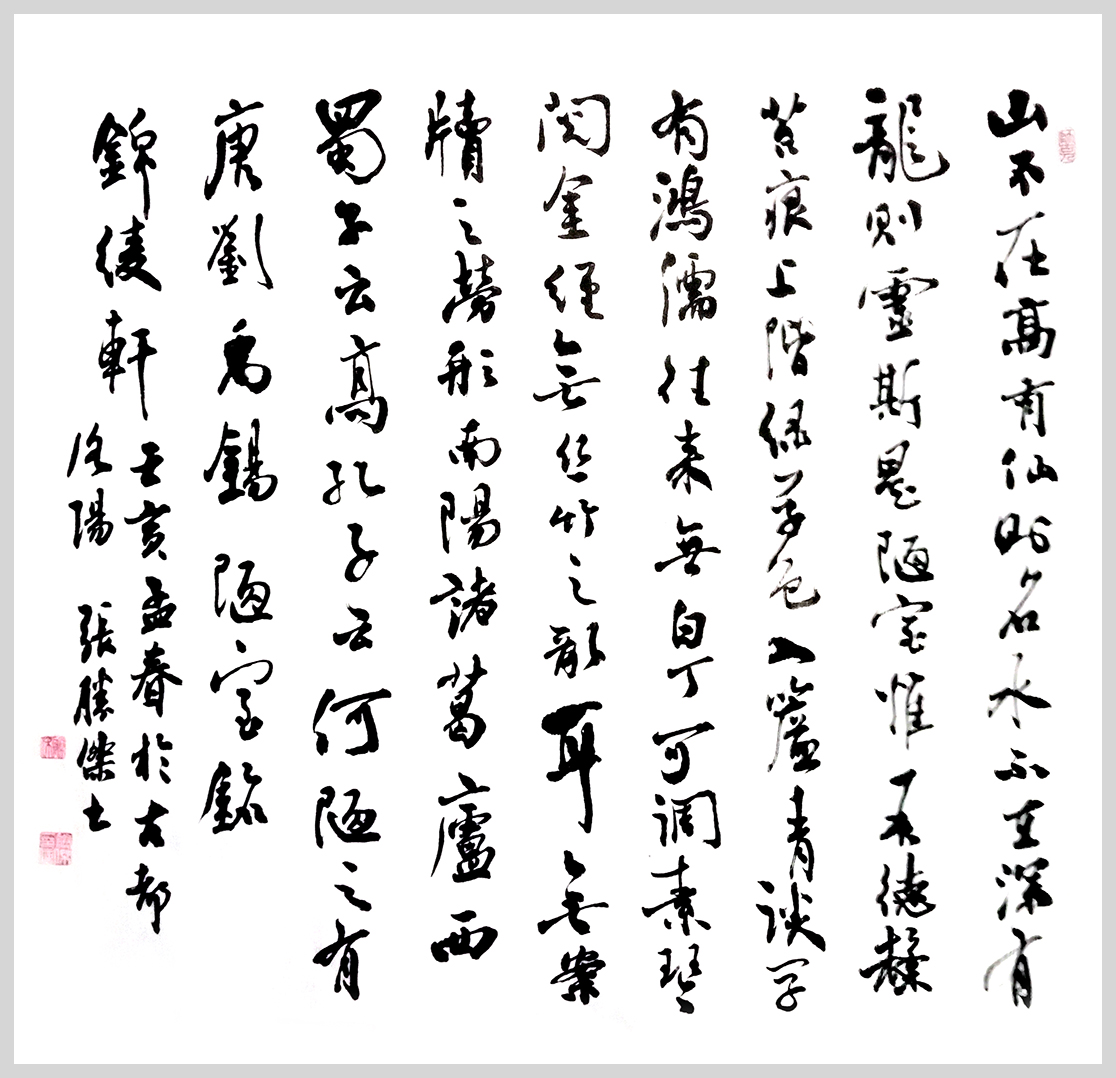 山不在高有仙則名水不在深有
龍則靈斯是陋室惟吾德馨
苔痕上階綠草色入簾青談笑
有鴻儒往來無白丁可調素琴
閱金經無絲竹之亂耳無案
牘之勞形南陽諸葛廬西
蜀子云亭孔子云何陋之有
唐劉禹錫 陋室銘
錦綾軒 壬亥孟春於古都
洛陽 張勝傑